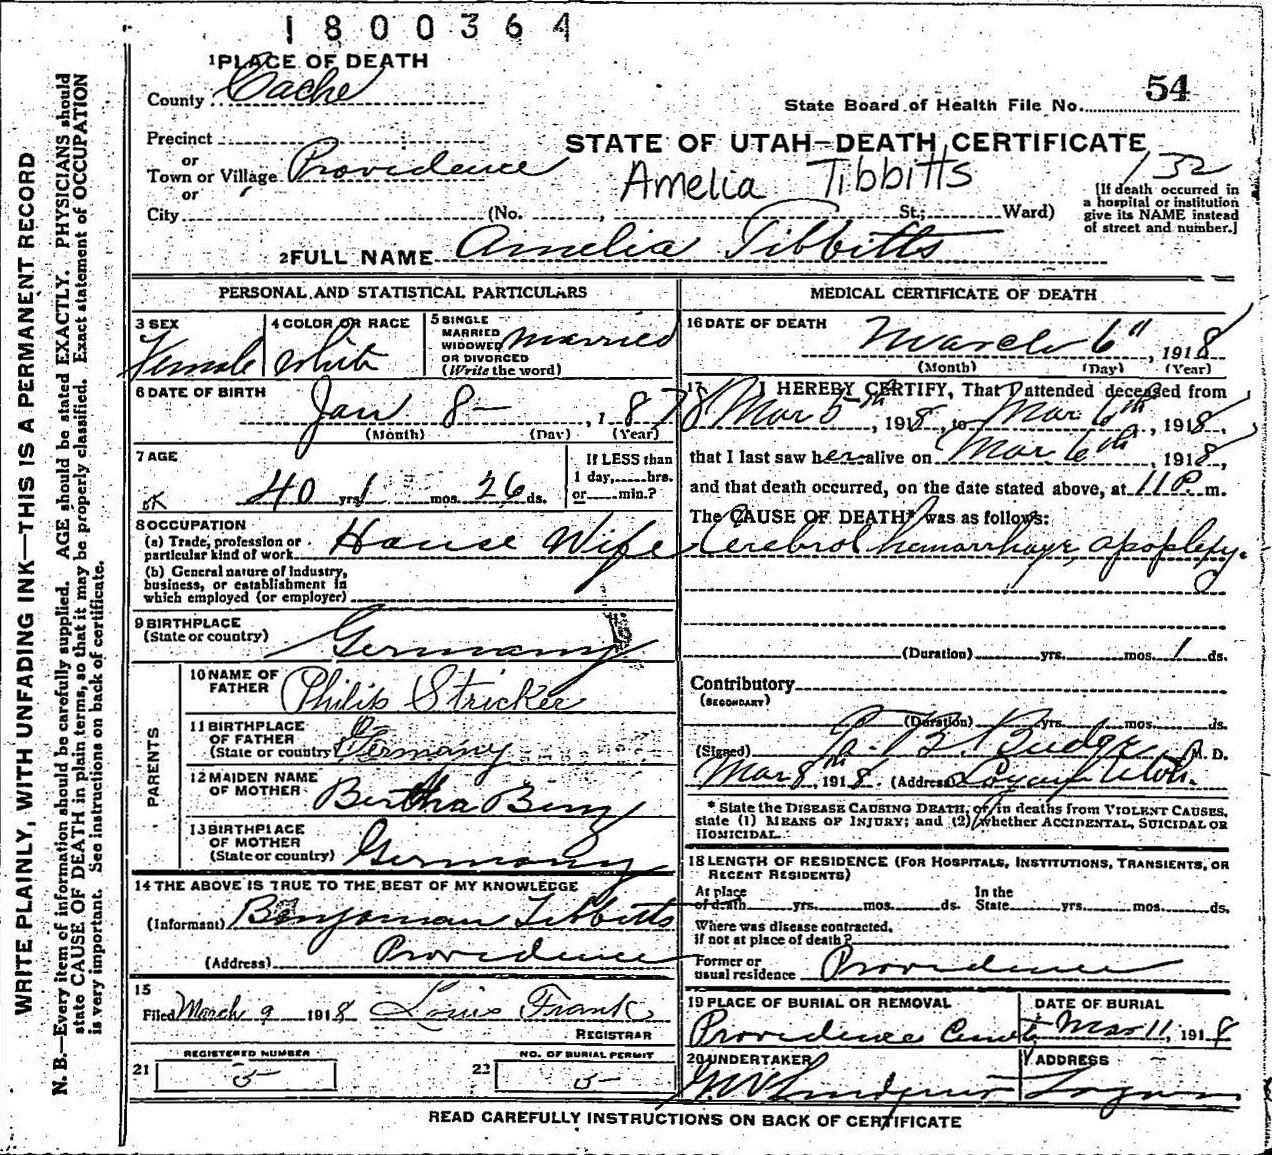 1800364
1 PLACE OF DEATH
County Cache
State Board of Health File No. 54
Precinct
or
Town or Village Providence
or
City (No. , St.; Ward)
STATE OF UTAH—DEATH CERTIFICATE
132
Amelia Tibbitts
[If death occurred in
a hospital or institution
give its NAME instead
of street and number.]
2 FULL NAME Amelia Tibbitts
PERSONAL AND STATISTICAL PARTICULARS
3 SEX
Female
4 COLOR OR RACE
White
5 SINGLE
MARRIED
WIDOWED
OR DIVORCED
(Write the word)
Married
6 DATE OF BIRTH
Jan 8 — , 1878
(Month) (Day) (Year)
7 AGE
OK 40 yrs 1 mos. 26 ds.
If LESS than
1 day, hrs.
or min.?
8 OCCUPATION
(a) Trade, profession or
particular kind of work House Wife
(b) General nature of industry,
business, or establishment in
which employed (or employer)
9 BIRTHPLACE
(State or country) Germany
PARENTS
10 NAME OF
FATHER Philip Stricker
11 BIRTHPLACE
OF FATHER
(State or country) Germany
12 MAIDEN NAME
OF MOTHER Bertha Benz
13 BIRTHPLACE
OF MOTHER
(State or country) Germany
14 THE ABOVE IS TRUE TO THE BEST OF MY KNOWLEDGE
(Informant) Benjaman Tibbitts
(Address) Providence
15
Filed March 9 1918 Louis Frank
REGISTRAR
REGISTERED NUMBER
21 5
NO. OF BURIAL PERMIT
22 5
MEDICAL CERTIFICATE OF DEATH
16 DATE OF DEATH
March 6th, 1918
(Month) (Day) (Year)
17 I HEREBY CERTIFY, That I attended deceased from
Mar 5th, 1918, to Mar 6th, 1918,
that I last saw her alive on Mar 6th, 1918,
and that death occurred, on the date stated above, at 11 P. m.
The CAUSE OF DEATH* was as follows:
Cerebrol hemorrhage, apoplexy.
(Duration) yrs. mos. 1 ds.
Contributory
(SECONDARY)
(Duration) yrs. mos. ds.
(Signed) B. Budge M. D.
Mar 8th, 1918. (Address) Logan Utah.
* State the DISEASE CAUSING DEATH, or, in deaths from VIOLENT CAUSES,
state (1) MEANS OF INJURY; and (2) whether ACCIDENTAL, SUICIDAL OR
HOMICIDAL.
18 LENGTH OF RESIDENCE (FOR HOSPITALS, INSTITUTIONS, TRANSIENTS, OR
RECENT RESIDENTS)
At place
of death yrs. mos. ds.
In the
State yrs. mos. ds.
Where was disease contracted,
if not at place of death?
Former or
usual residence Providence
19 PLACE OF BURIAL OR REMOVAL
Providence
DATE OF BURIAL
Mar 11, 1918
20 UNDERTAKER
ADDRESS
Logan
READ CAREFULLY INSTRUCTIONS ON BACK OF CERTIFICATE
WRITE PLAINLY, WITH UNFADING INK—THIS IS A PERMANENT RECORD
N. B.—Every item of information should be carefully supplied. AGE should be stated EXACTLY. PHYSICIANS should
state CAUSE OF DEATH in plain terms, so that it may be properly classified. Exact statement of OCCUPATION
is very important. See instructions on back of certificate.